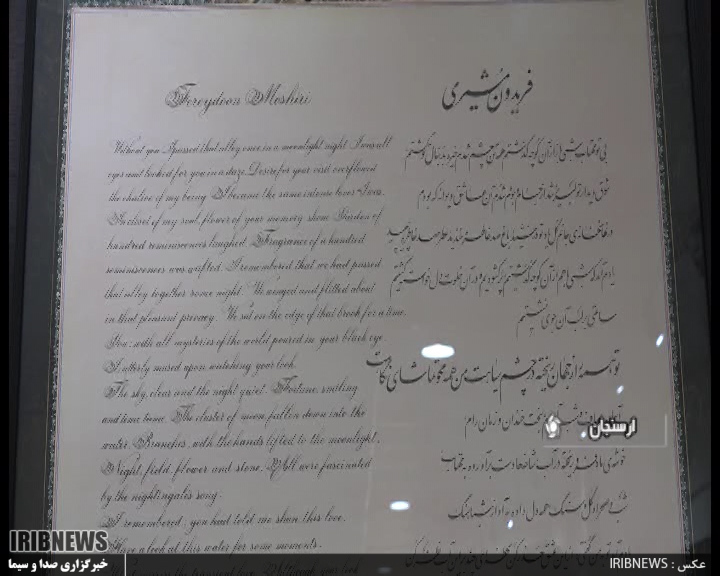 Fereydoon Moshiri
Without you I passed that alley once in a moonlight night I was all
eyes and looked for you in a daze. Desire for your visit overflowed
the chalice of my being. I became the same intense lover I was.
In closet of my soul, flower of your memory shone. Garden of
hundred reminiscences laughed. Fragrance of a hundred
reminiscences was wafted. I remembered that we had passed
that alley together some night. We winged and flitted about
in that pleasant privacy. We sat on the edge of that brook for a time.
You, with all mysteries of the world poured in your black eye
I, utterly mused upon watching your look.
The sky, clear and the night quiet. Fortune, smiling
and time tame. The cluster of moon fallen down into the
water. Branches, with the hands lifted to the moonlight.
Night, field flower and stone. All were fascinated
by the nightingale's song.
I remembered; you had told me shun this love.
Have a look at this water for some moments.
فریدون مشیری
بی تو مهتاب شبی باز از آن کوچه گذشتم همه تن چشم شدم خیره به دنبال تو گشتم
شوق دیدار تو لبریز شد از جام وجودم شدم آن عاشق دیوانه که بودم
در نهانخانه جانم گل یاد تو درخشید باغ صد خاطره خندید عطر صد خاطره پیچید
یادم آمد که شبی با هم از آن کوچه گذشتیم پر گشودیم و در آن خلوت دلخواسته گشتیم
ساعتی بر لب آن جوی نشستیم
تو همه راز جهان ریخته در چشم سیاهت من همه محو تماشای نگاهت
بخت خندان و زمان رام
خوشه ماه فرو ریخته در آب شاخه‌ها دست برآورده به مهتاب
شب و صحرا و گل و سنگ همه دل داده به آواز شباهنگ
ارسنجان
IRIBNEWS
خبرگزاری صدا و سیما
عکس : IRIBNEWS